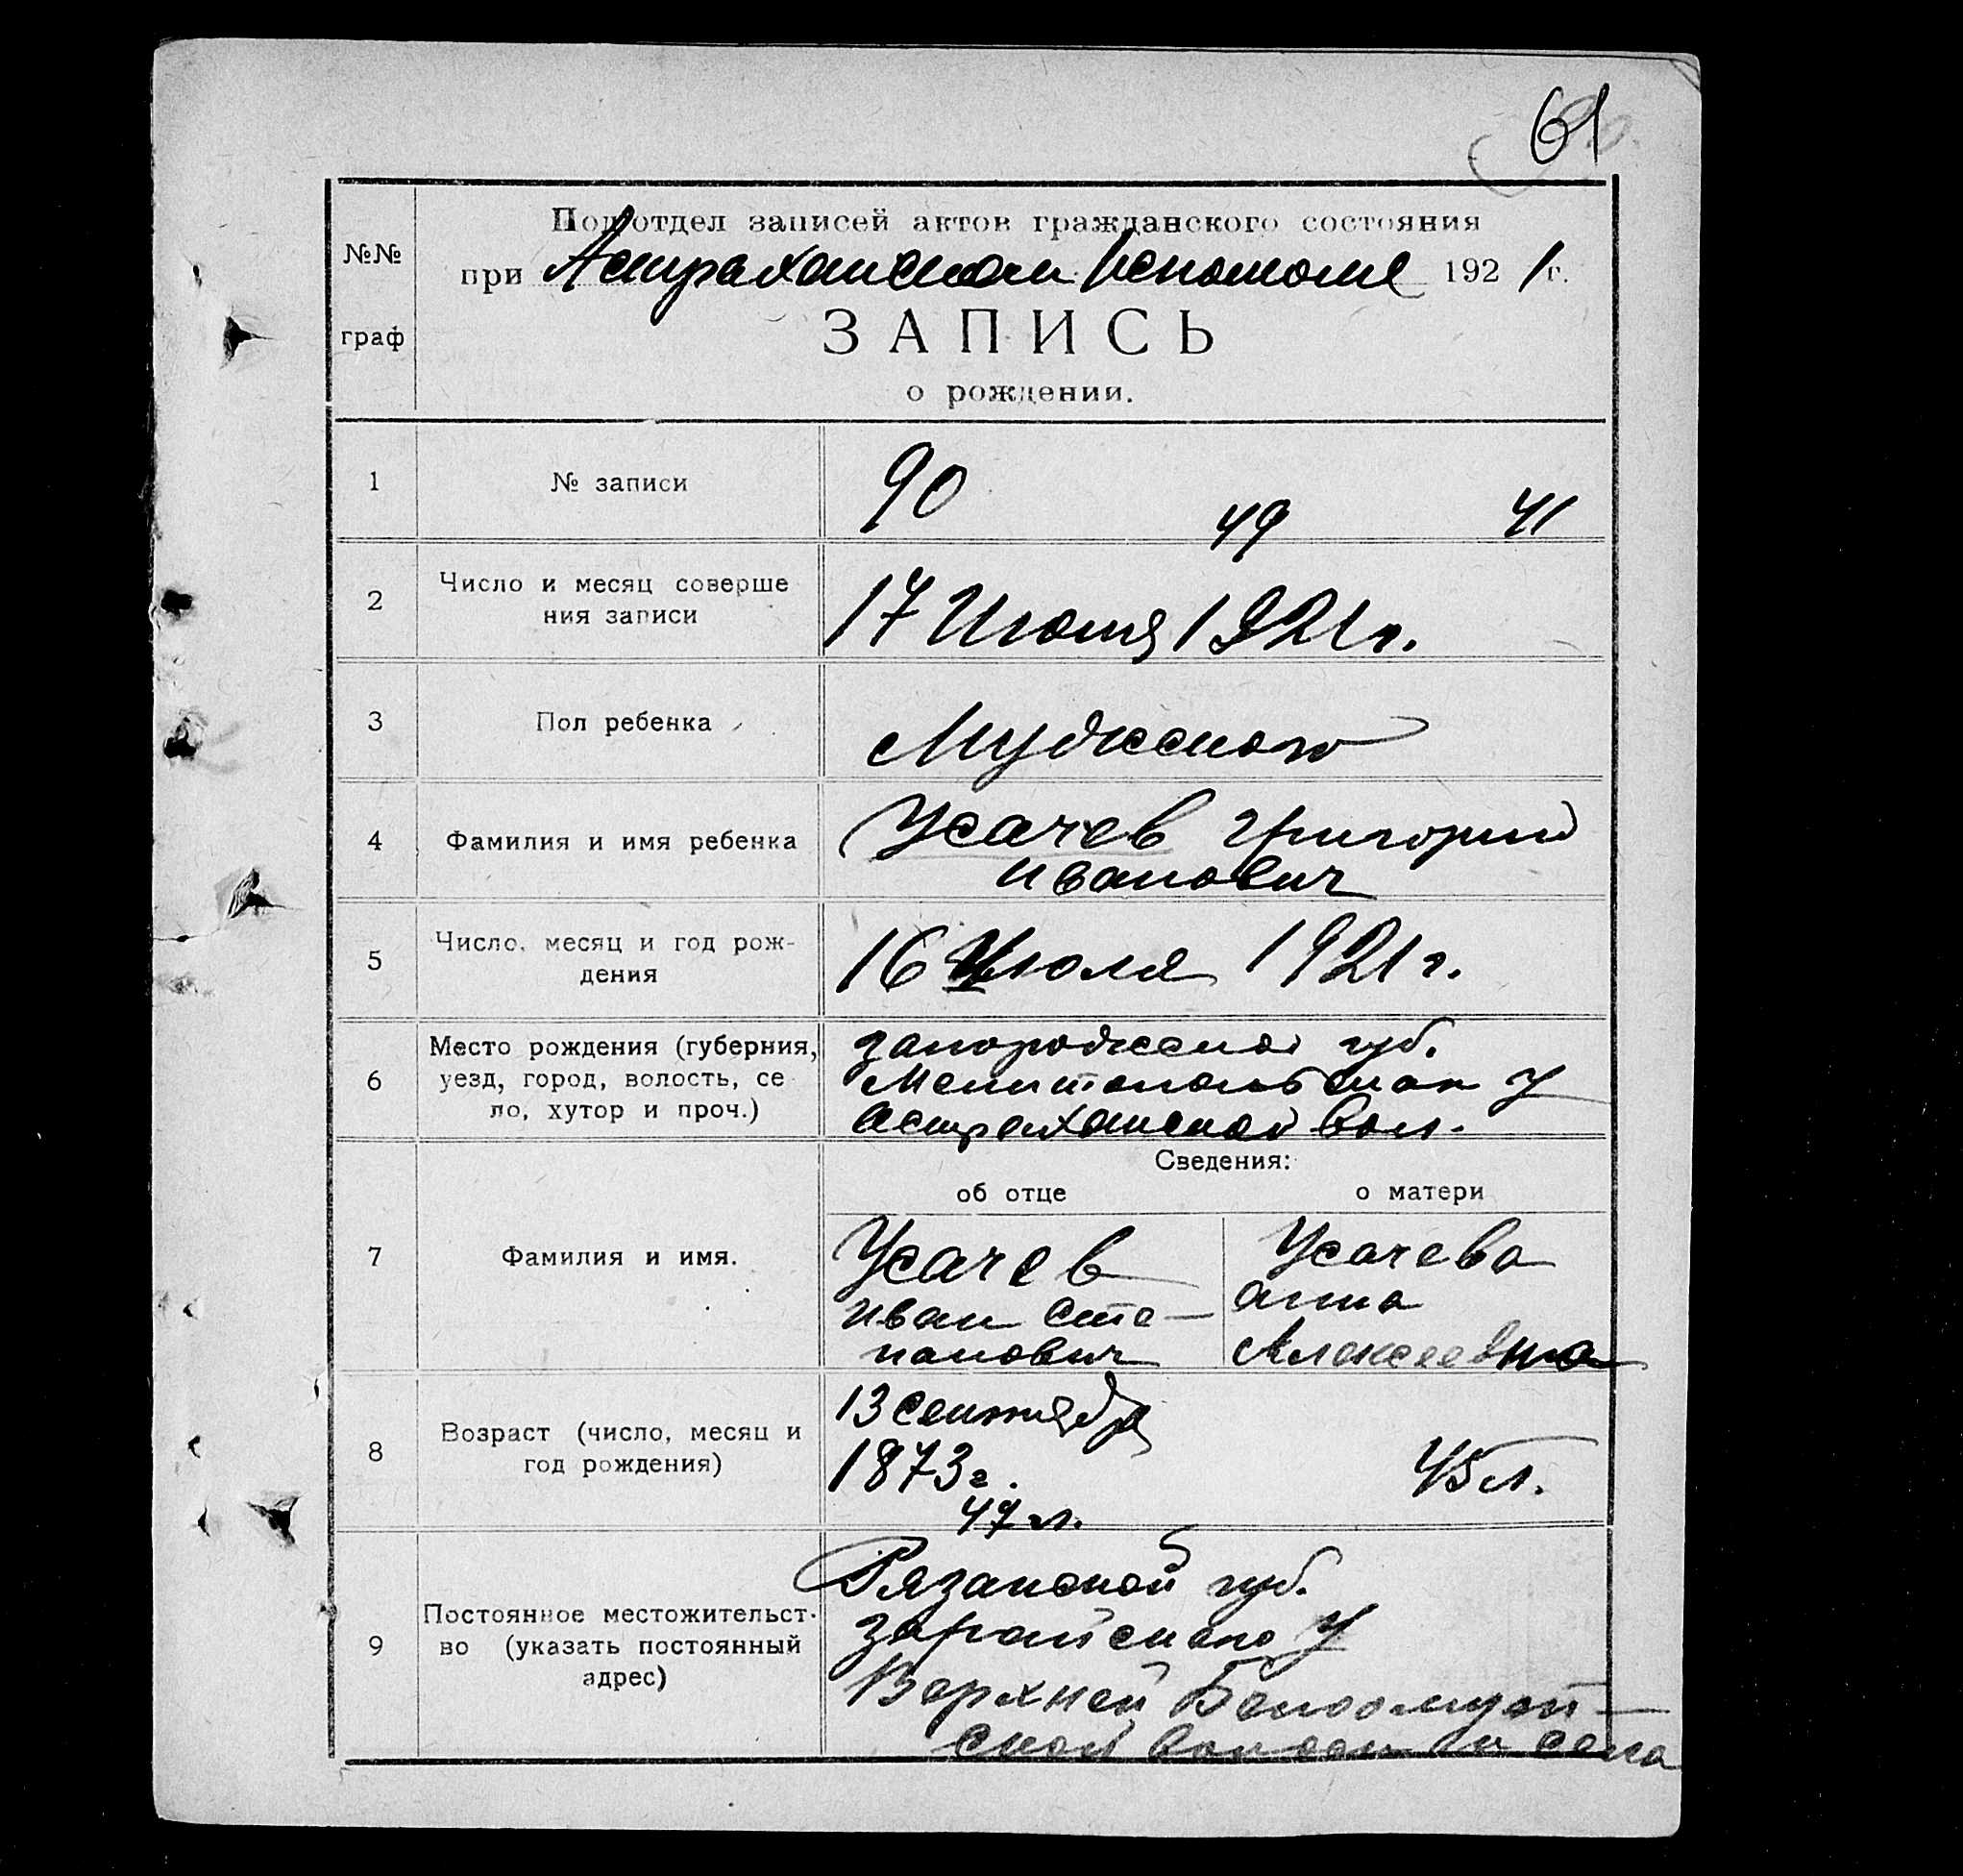 61
Подотдел записей актов гражданского состояния
№№
при Астраханском Исполкоме 1921 г.
граф
ЗАПИСЬ
о рождении.
1 № записи 90 49 41
2 Число и месяц соверше
ния записи
17 Июля 1921 г.
3 Пол ребенка Мужеского
4 Фамилия и имя ребенка Усачев Григорий
Иванович
5 Число, месяц и год рож-
дения
16 Июля 1921 г.
6 Место рождения (губерния,
уезд, город, волость, се
ло, хутор и проч.)
Запорожской губ.
Мелитопольскаго у
Астраханской вол.
Сведения:
об отце о матери
7 Фамилия и имя.
Усачев
Иван Сте-
панович
Усачева
Анна
Алексеевна
8 Возраст (число, месяц и
год рождения)
13 сентября
1873 г.
47 л.
45 л.
9 Постоянное местожительст-
во (указать постоянный
адрес)
Рязанской губ.
Зарайскаго у
Верхней Белоомутай-
ской волости села